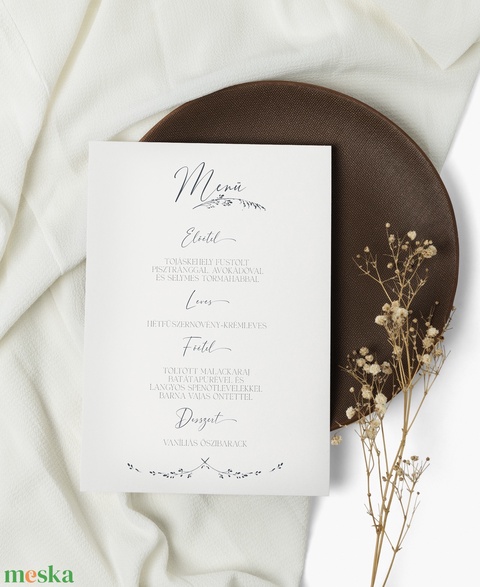 Menü
Előétel
TOJÁSKEHELY FÜSTÖLT
PISZTRÁNGGAL, AVOKÁDÓVAL
ÉS SELYMES TORMAHABBAL
Leves
HÉTFŰSZERNÖVÉNY-KRÉMLEVES
Főétel
TÖLTÖTT MALACKARAJ
BATÁTAPÜRÉVEL ÉS
LANGYOS SPENÓTLEVELEKKEL
BARNA VAJAS ÖNTETTEL
Desszert
VANÍLIÁS ŐSZIBARACK
meska